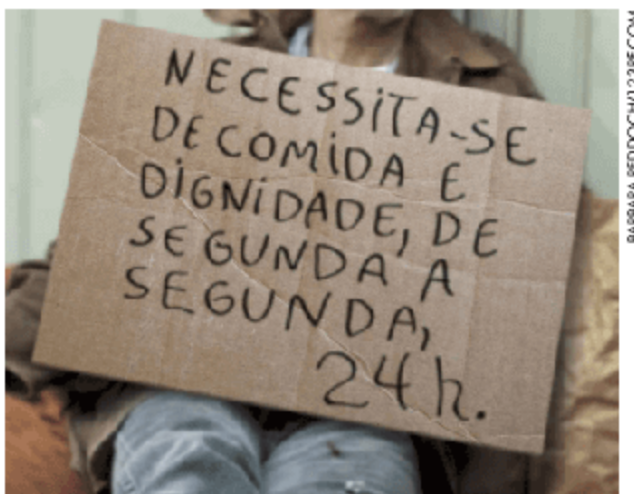 NECESSITA-SE
DE COMIDA E
DIGNIDADE, DE
SEGUNDA A
SEGUNDA,
24h.